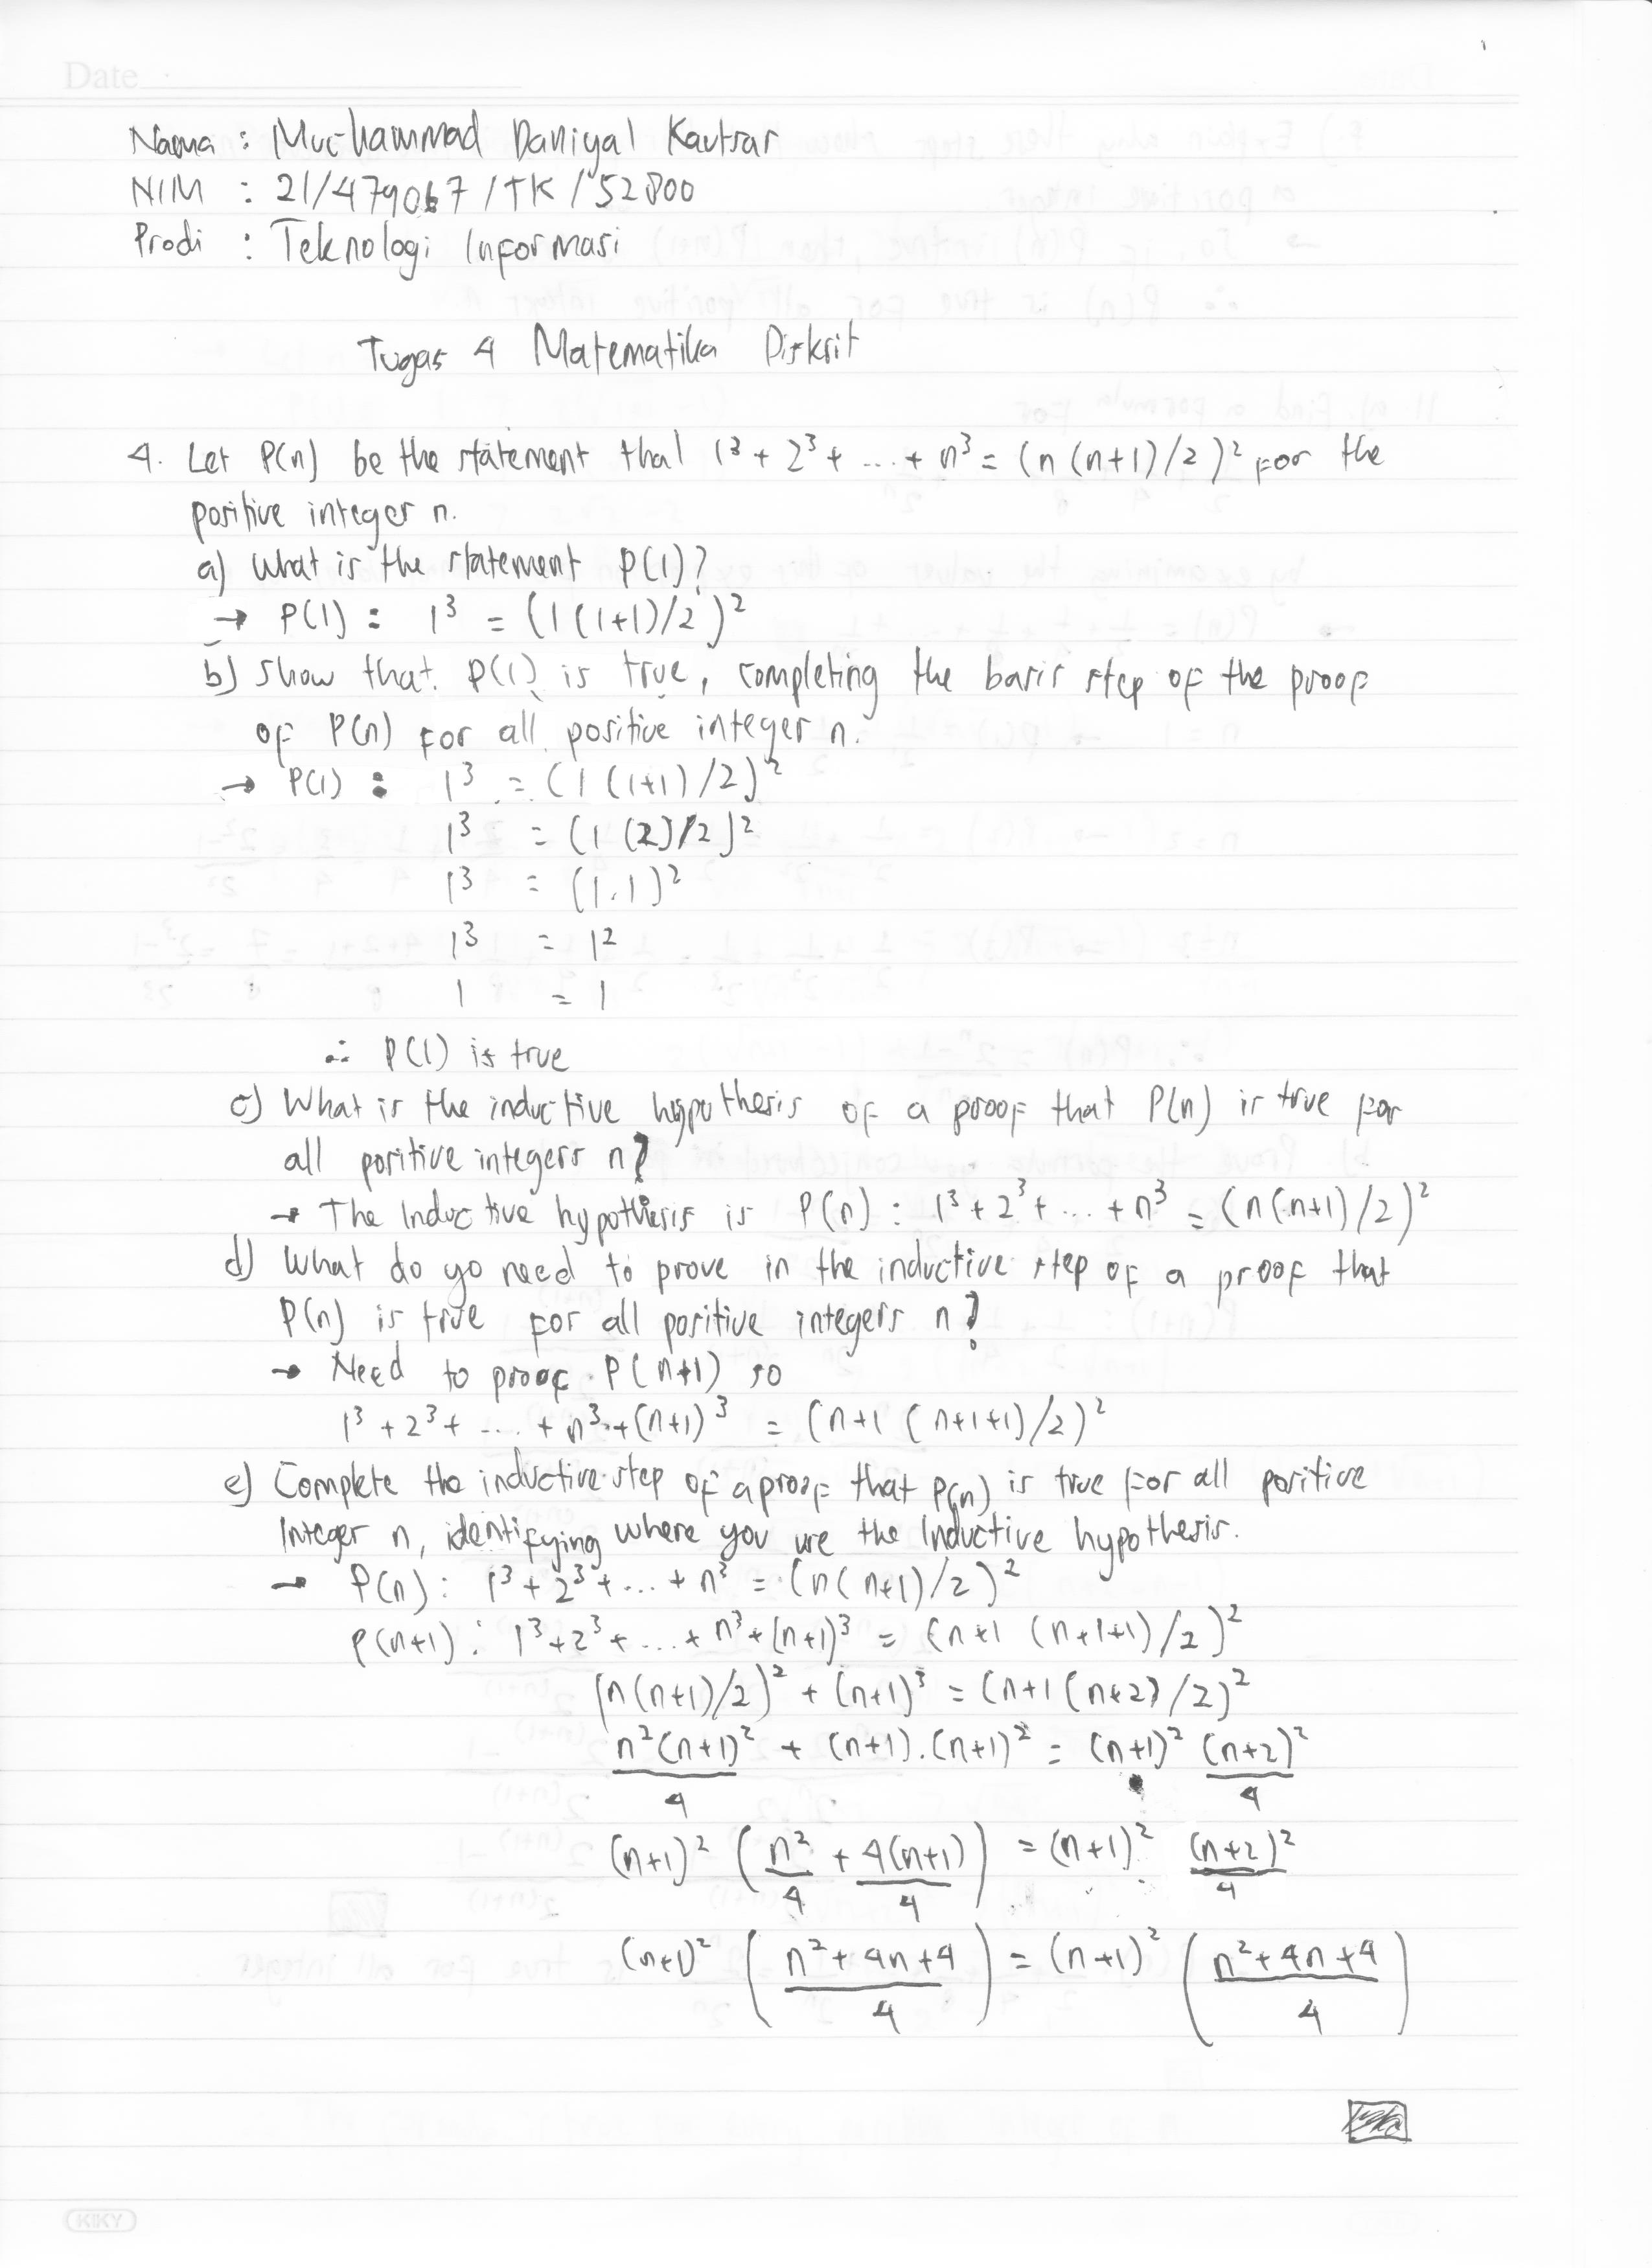 Date
Nama : Muchammad Daniyal Kautsar
NIM : 21/479067/TK/52800
Prodi : Teknologi Informasi
Tugas 4 Matematika Diskrit
4. Let P(n) be the statement that 1³ + 2³ + ... + n³ = (n (n+1)/2)² for the
positive integer n.
a) What is the statement P(1)?
→ P(1) : 1³ = (1(1+1)/2)²
b) Show that P(1) is true, completing the basis step of the proof
of P(n) for all positive integer n.
→ P(1) : 1³ = (1 (1+1)/2)²
1³ = (1 (2)/2)²
1³ = (1.1)²
1³ = 1²
1 = 1
∴ P(1) is true
c) What is the inductive hypothesis of a proof that P(n) is true for
all positive integers n?
→ The Inductive hypothesis is P(n) : 1³ + 2³ + ... + n³ = (n(n+1)/2)²
d) What do yo need to prove in the inductive step of a proof that
P(n) is true for all positive integers n?
→ Need to proof P(n+1) so
1³ + 2³ + .... + n³ + (n+1)³ = (n+1 (n+1+1)/2)²
e) Complete the inductive step of a proof that P(n) is true for all positive
Integer n, identifying where you use the Inductive hypothesis.
→ P(n) : 1³ + 2³ + ... + n³ = (n(n+1)/2)²
P(n+1) : 1³ + 2³ + ... + n³ + (n+1)³ = (n+1 (n+1+1)/2)²
(n(n+1)/2)² + (n+1)³ = (n+1(n+2)/2)²
n²(n+1)²/4 + (n+1).(n+1)² = (n+1)² (n+2)²/4
(n+1)² (n²/4 + 4(n+1)/4) = (n+1)² (n+2)²/4
(n+1)² (n²+4n+4/4) = (n+1)² (n²+4n+4/4)
KIKY